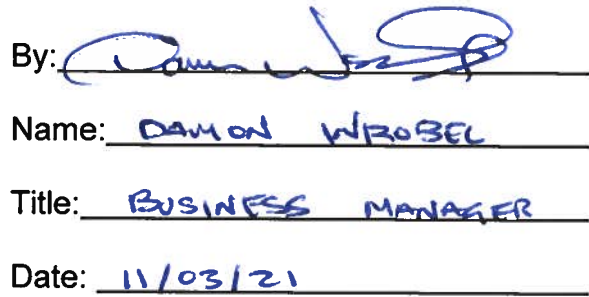 By: Damon Wrobel
Name: DAMON WROBEL
Title: BUSINESS MANAGER
Date: 11/03/21